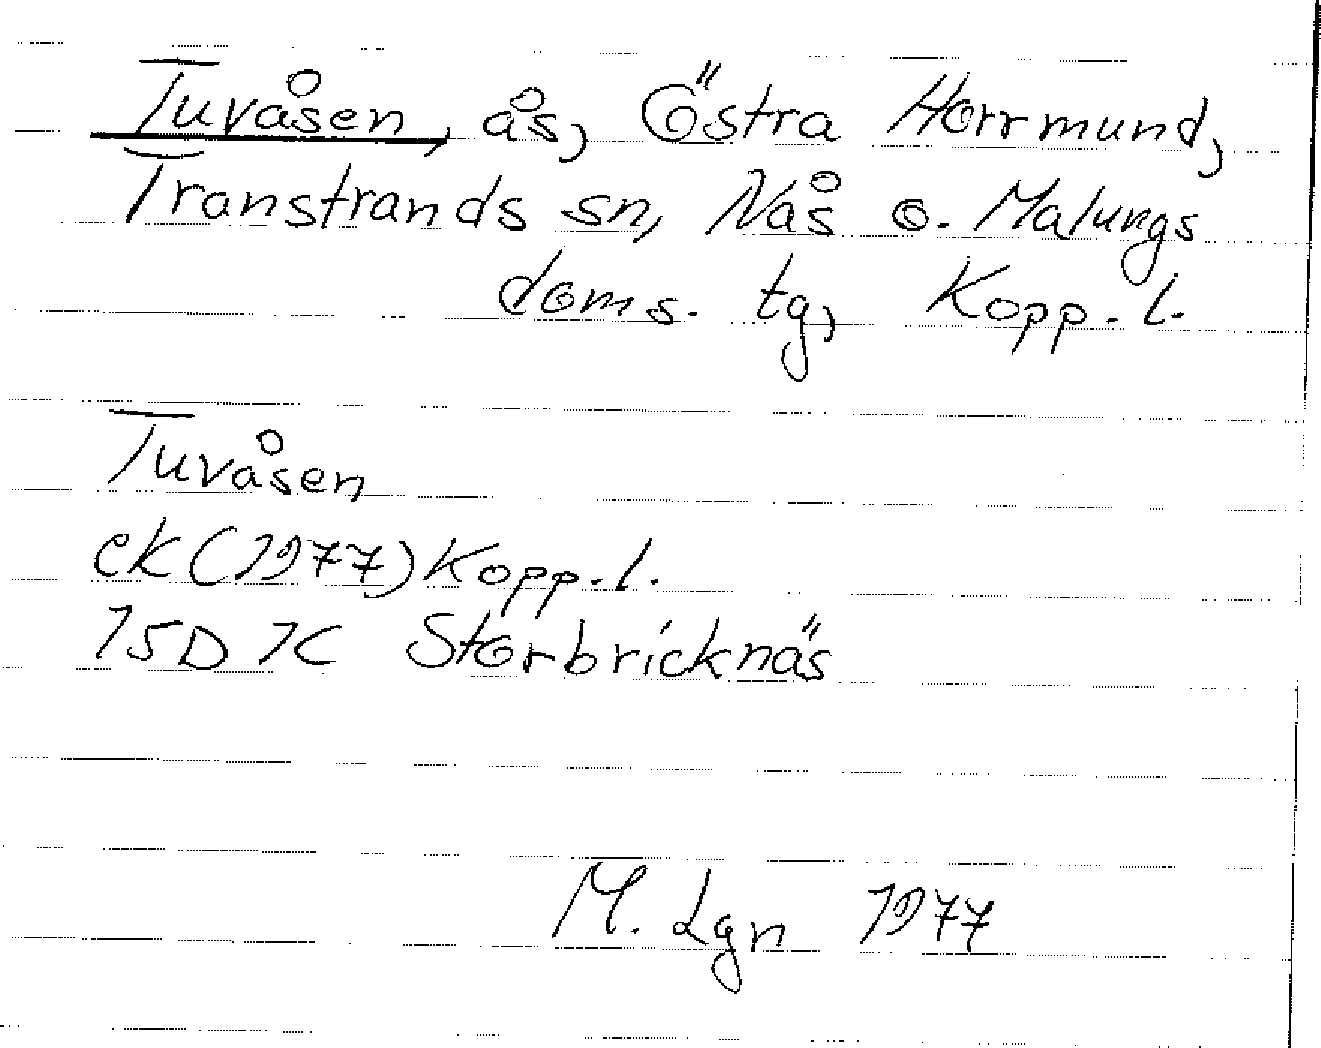 Tuvåsen, ås, Östra Horrmund,
Transtrands sn, Nås o. Malungs
doms. tg, Kopp. l.
Tuvåsen
ek (1977) Kopp. l.
15D 1C Storbricknäs
M. Lgn 1977